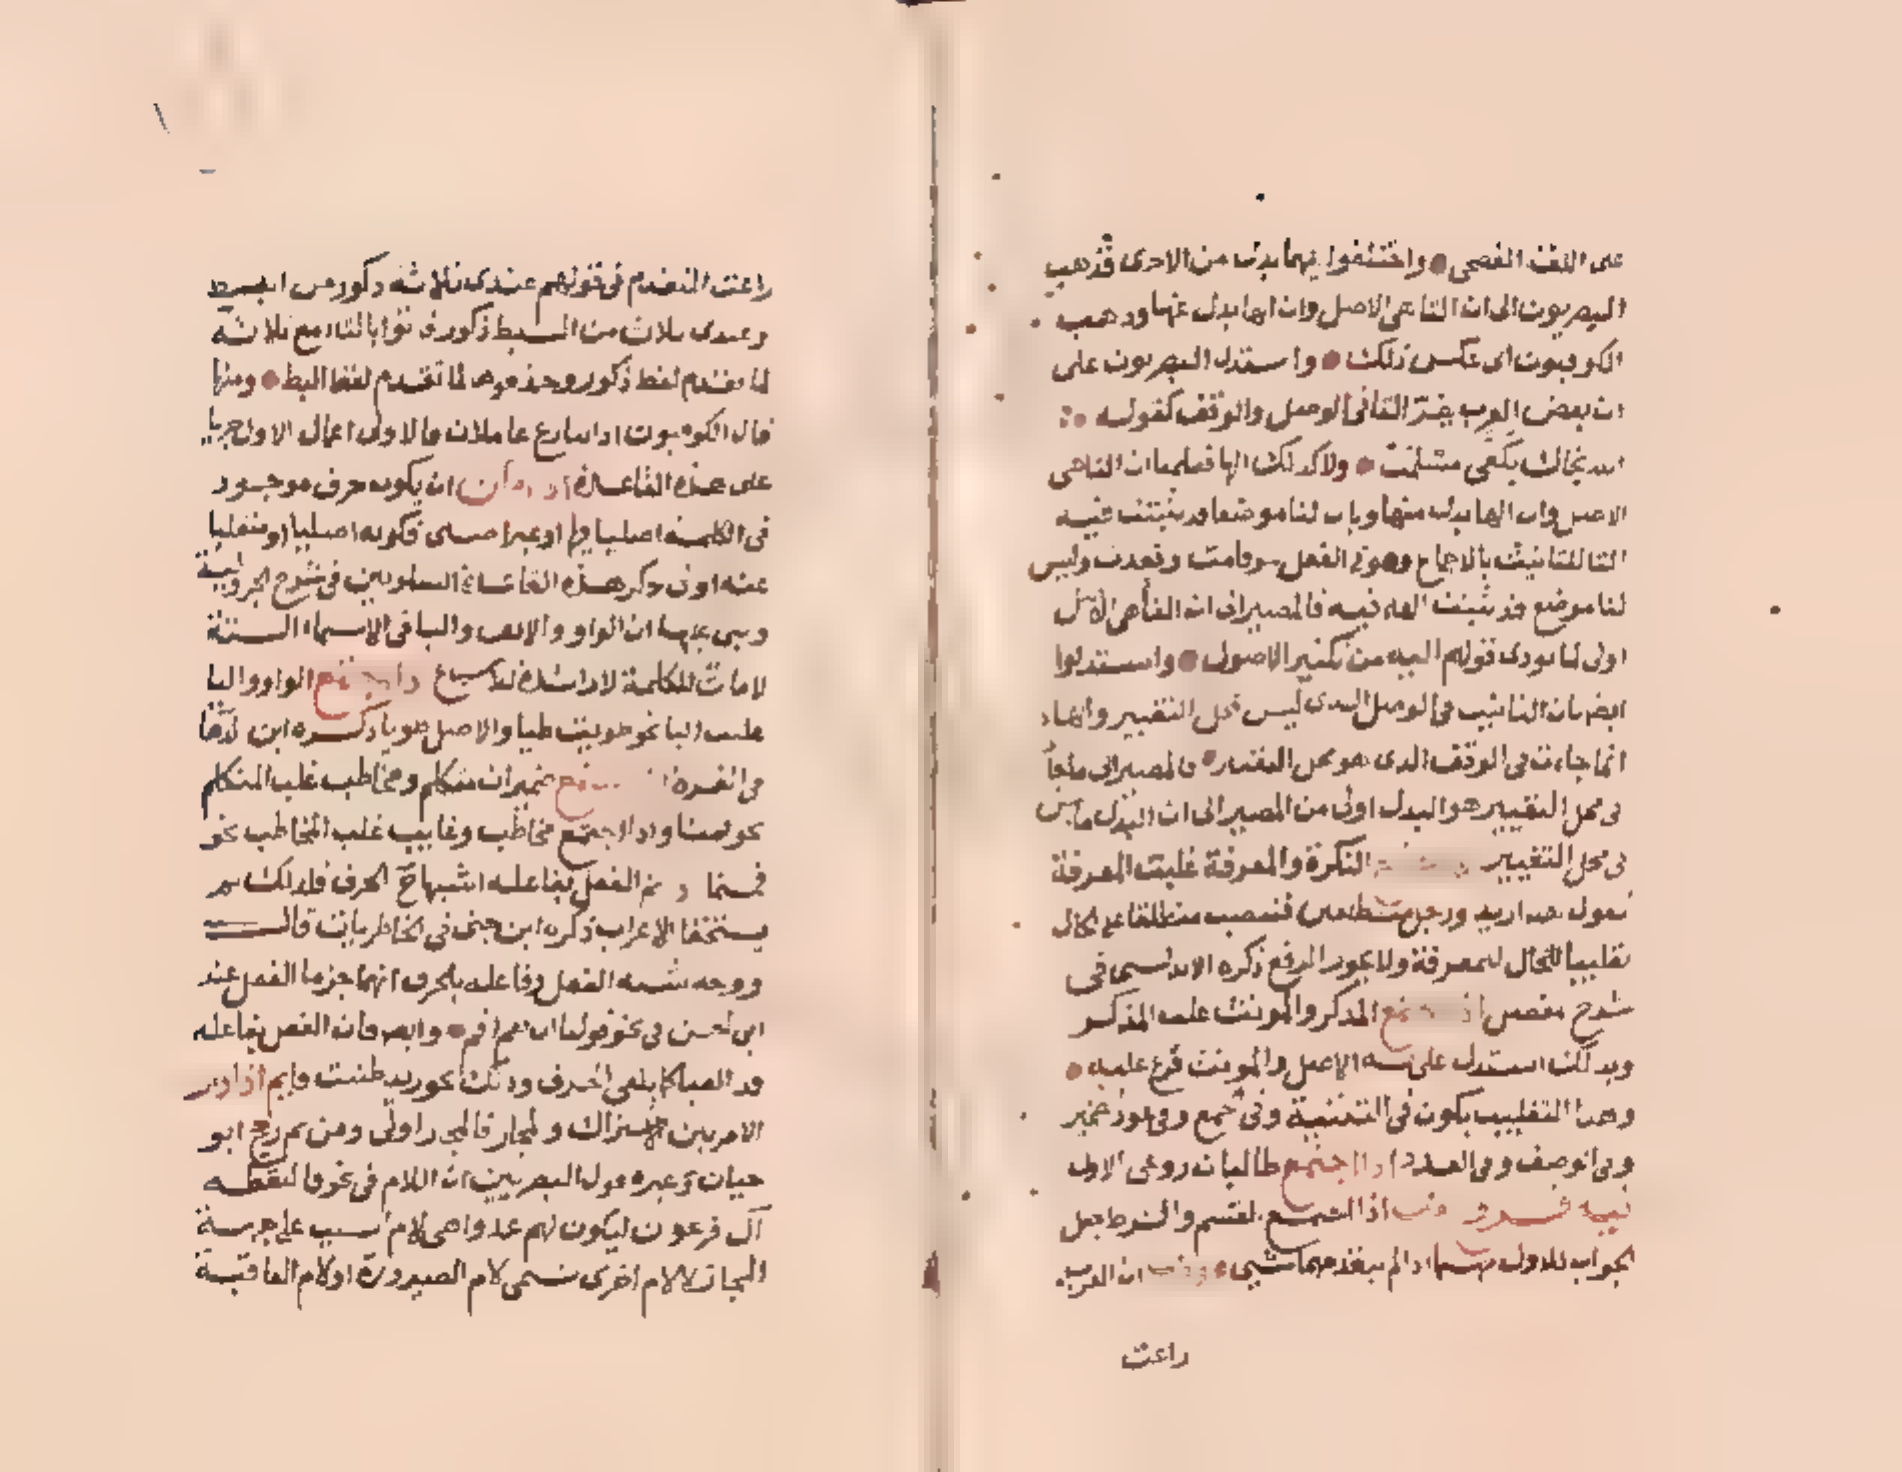 على اللغة الفصحى واختلفوا ايهما بدل من الاخرى فذهب
البصريون الى ان التا هى الاصل وان الها بدل عنها وذهب
الكوفيون الى عكس ذلك واستدل البصريون على
ان بعض العرب يقر التا فى الوصل والوقف كقوله
الله نجاك بكفى مسلمت ولا كذلك الها فعلمنا ان التا هى
الاصل وان الها بدل منها وبان لنا موضعا قد ثبتت فيه
التا للتانيث بالاجماع وهو فى الفعل نحو قامت وقعدت وليس
لنا موضع قد ثبتت الها فيه فالمصير الى ان التا هى الاصل
اولى لما يودى قولهم اليه من تكثير الاصول واستدلوا
ايضا بان التانيث فى الوصل الذى ليس محل التغيير والها
انما جاءت فى الوقف الذى هو محل التغيير فالمصير الى ما جا
فى محل التغيير هو البدل اولى من المصير الى ان البدل ما ليس
فى محل التغيير النكرة والمعرفة غلبت المعرفة
تقول هذا زيد ورجل منطلقين فتنصب منطلقا على الحال
تغليبا للحال للمعرفة ولا يجوز الرفع ذكره الاندلسى فى
شرح المفصل اذا اجتمع المذكر والمونث غلب المذكر
وبذلك استدل على انه الاصل والمونث فرع عليه
وهذا التغليب يكون فى التثنية وفى الجمع وفى عود ضمير
وفى الوصف وفى العدد اذا اجتمع طالبان روعى الاول
فيه فروع منها اذا اجتمع القسم والشرط جعل
الجواب للاول منهما اذا لم يتقدمهما شىء ومنها ان العرب
راعت
راعت المتقدم فى قولهم عندى ثلاثة ذكور من البط
وعندى ثلاث من البط ذكور فاتوا بالتاء مع ثلاثة
لما تقدم لفظ ذكور وحذفوها لما تقدم لفظ البط ومنها
قال الكوفيون اذا تنازع عاملان فالاولى اعمال الاول جريا
على هذه القاعدة ان يكون حرف موجود
فى الكلمة اصليا فيها او غير اصلى فكونه اصليا او منقلبا
عنه اولى ذكر هذه القاعدة الشلوبين فى شرح الجزولية
وبنى عليها ان الواو والالف واليا فى الاسماء الستة
لامات للكلمة لا زائدة للاشباع اذا اجتمع الواو واليا
غلبت اليا نحو طويت طيا والاصل طويا ذكره ابن الدهان
فى الغرة اجتمع ضميران متكلم ومخاطب غلب المتكلم
نحو قمنا واذا اجتمع مخاطب وغايب غلب المخاطب نحو
قمتما الفعل بفاعله اشبها الحرف فلذلك لم
يستحقا الاعراب ذكره ابن جنى فى الخاطريات قال
ووجه شبه الفعل وفاعله بالحرف انهما جزما الفعل عند
ابى الحسن فى نحو قولنا ان تقم اقم وايضا فان الفعل بفاعله
قد الغيا كما يلغى الحرف وذلك نحو زيد ظننت قايم اذا دار
الامر بين الاشتراك والمجاز فالمجاز اولى ومن ثم رجح ابو
حيان وغيره قول البصريين ان اللام فى نحو فالتقطه
آل فرعون ليكون لهم عدوا هى لام السبب على جهة
المجاز لا لام اخرى تسمى لام الصيرورة او لام العاقبة